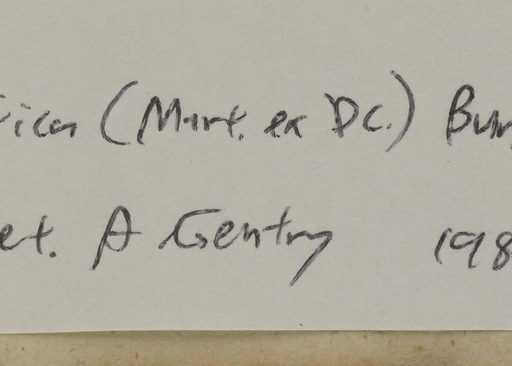 ica (Mart. ex DC.) Bur
et. A Gentry 198